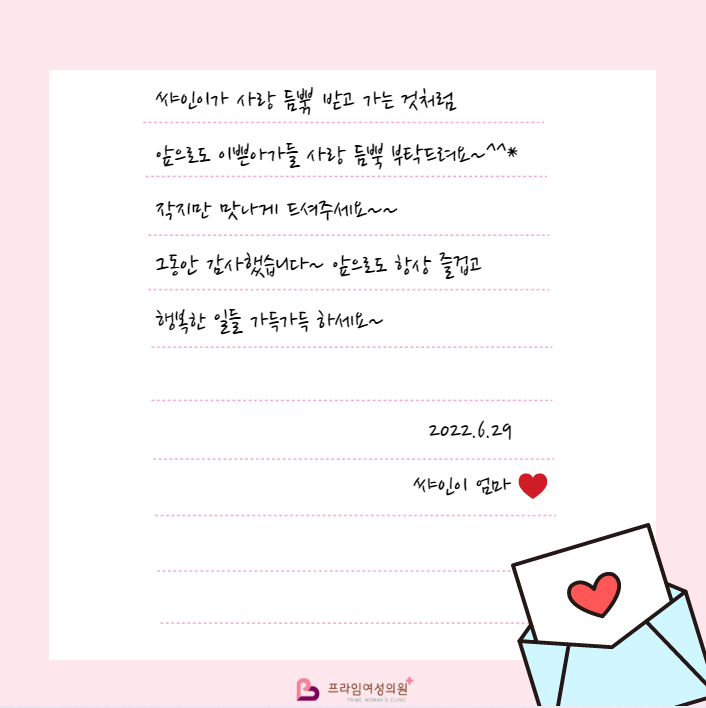 쌰인이가 사랑 듬뿍 받고 가는 것처럼
앞으로도 이쁜아가들 사랑 듬뿍 부탁드려요~^^*
작지만 맛나게 드셔주세요~~
그동안 감사했습니다~ 앞으로도 항상 즐겁고
행복한 일들 가득가득 하세요~
2022.6.29
쌰인이 엄마
프라임여성의원
PRIME WOMAN'S CLINIC